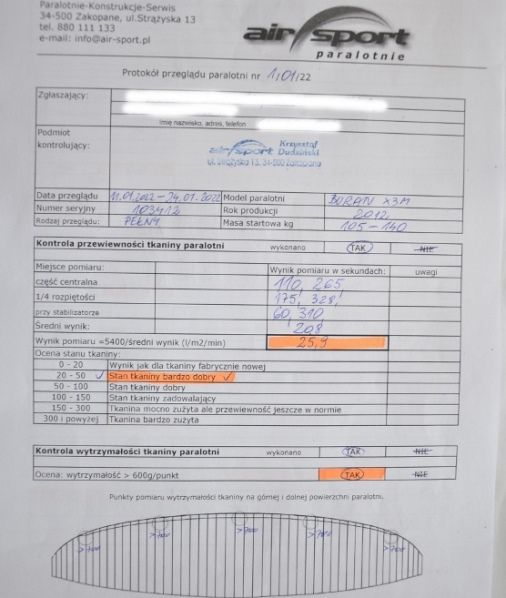 Paralotnie-Konstrukcje-Serwis
34-500 Zakopane, ul.Strążyska 13
tel. 880 111 133
e-mail: info@air-sport.pl
air sport
paralotnie
Protokół przeglądu paralotni nr 1/01/22
Zgłaszający:
imię nazwisko, adres, telefon
Podmiot
kontrolujący:
air sport Krzysztof
Dudziński
ul. Strążyska 13, 34-500 Zakopane
Data przeglądu 11.01.2022 – 24.01.2022 Model paralotni BURAN X3M
Numer seryjny 103412 Rok produkcji 2012
Rodzaj przeglądu: PEŁNY Masa startowa kg 105 – 140
Kontrola przewiewności tkaniny paralotni wykonano TAK NIE
Miejsce pomiaru: Wynik pomiaru w sekundach: uwagi
część centralna 110, 265
1/4 rozpiętości 175, 328,
przy stabilizatorze 60, 310
Średni wynik: 208
Wynik pomiaru =5400/średni wynik (l/m2/min) 25,9
Ocena stanu tkaniny:
0 - 20 Wynik jak dla tkaniny fabrycznie nowej
20 - 50 ✓ Stan tkaniny bardzo dobry ✓
50 - 100 Stan tkaniny dobry
100 - 150 Stan tkaniny zadowalający
150 - 300 Tkanina mocno zużyta ale przewiewność jeszcze w normie
300 i powyżej Tkanina bardzo zużyta
Kontrola wytrzymałości tkaniny paralotni wykonano TAK NIE
Ocena: wytrzymałość > 600g/punkt TAK NIE
Punkty pomiaru wytrzymałości tkaniny na górnej i dolnej powierzchni paralotni.
>700 >700 >700 >700 >700